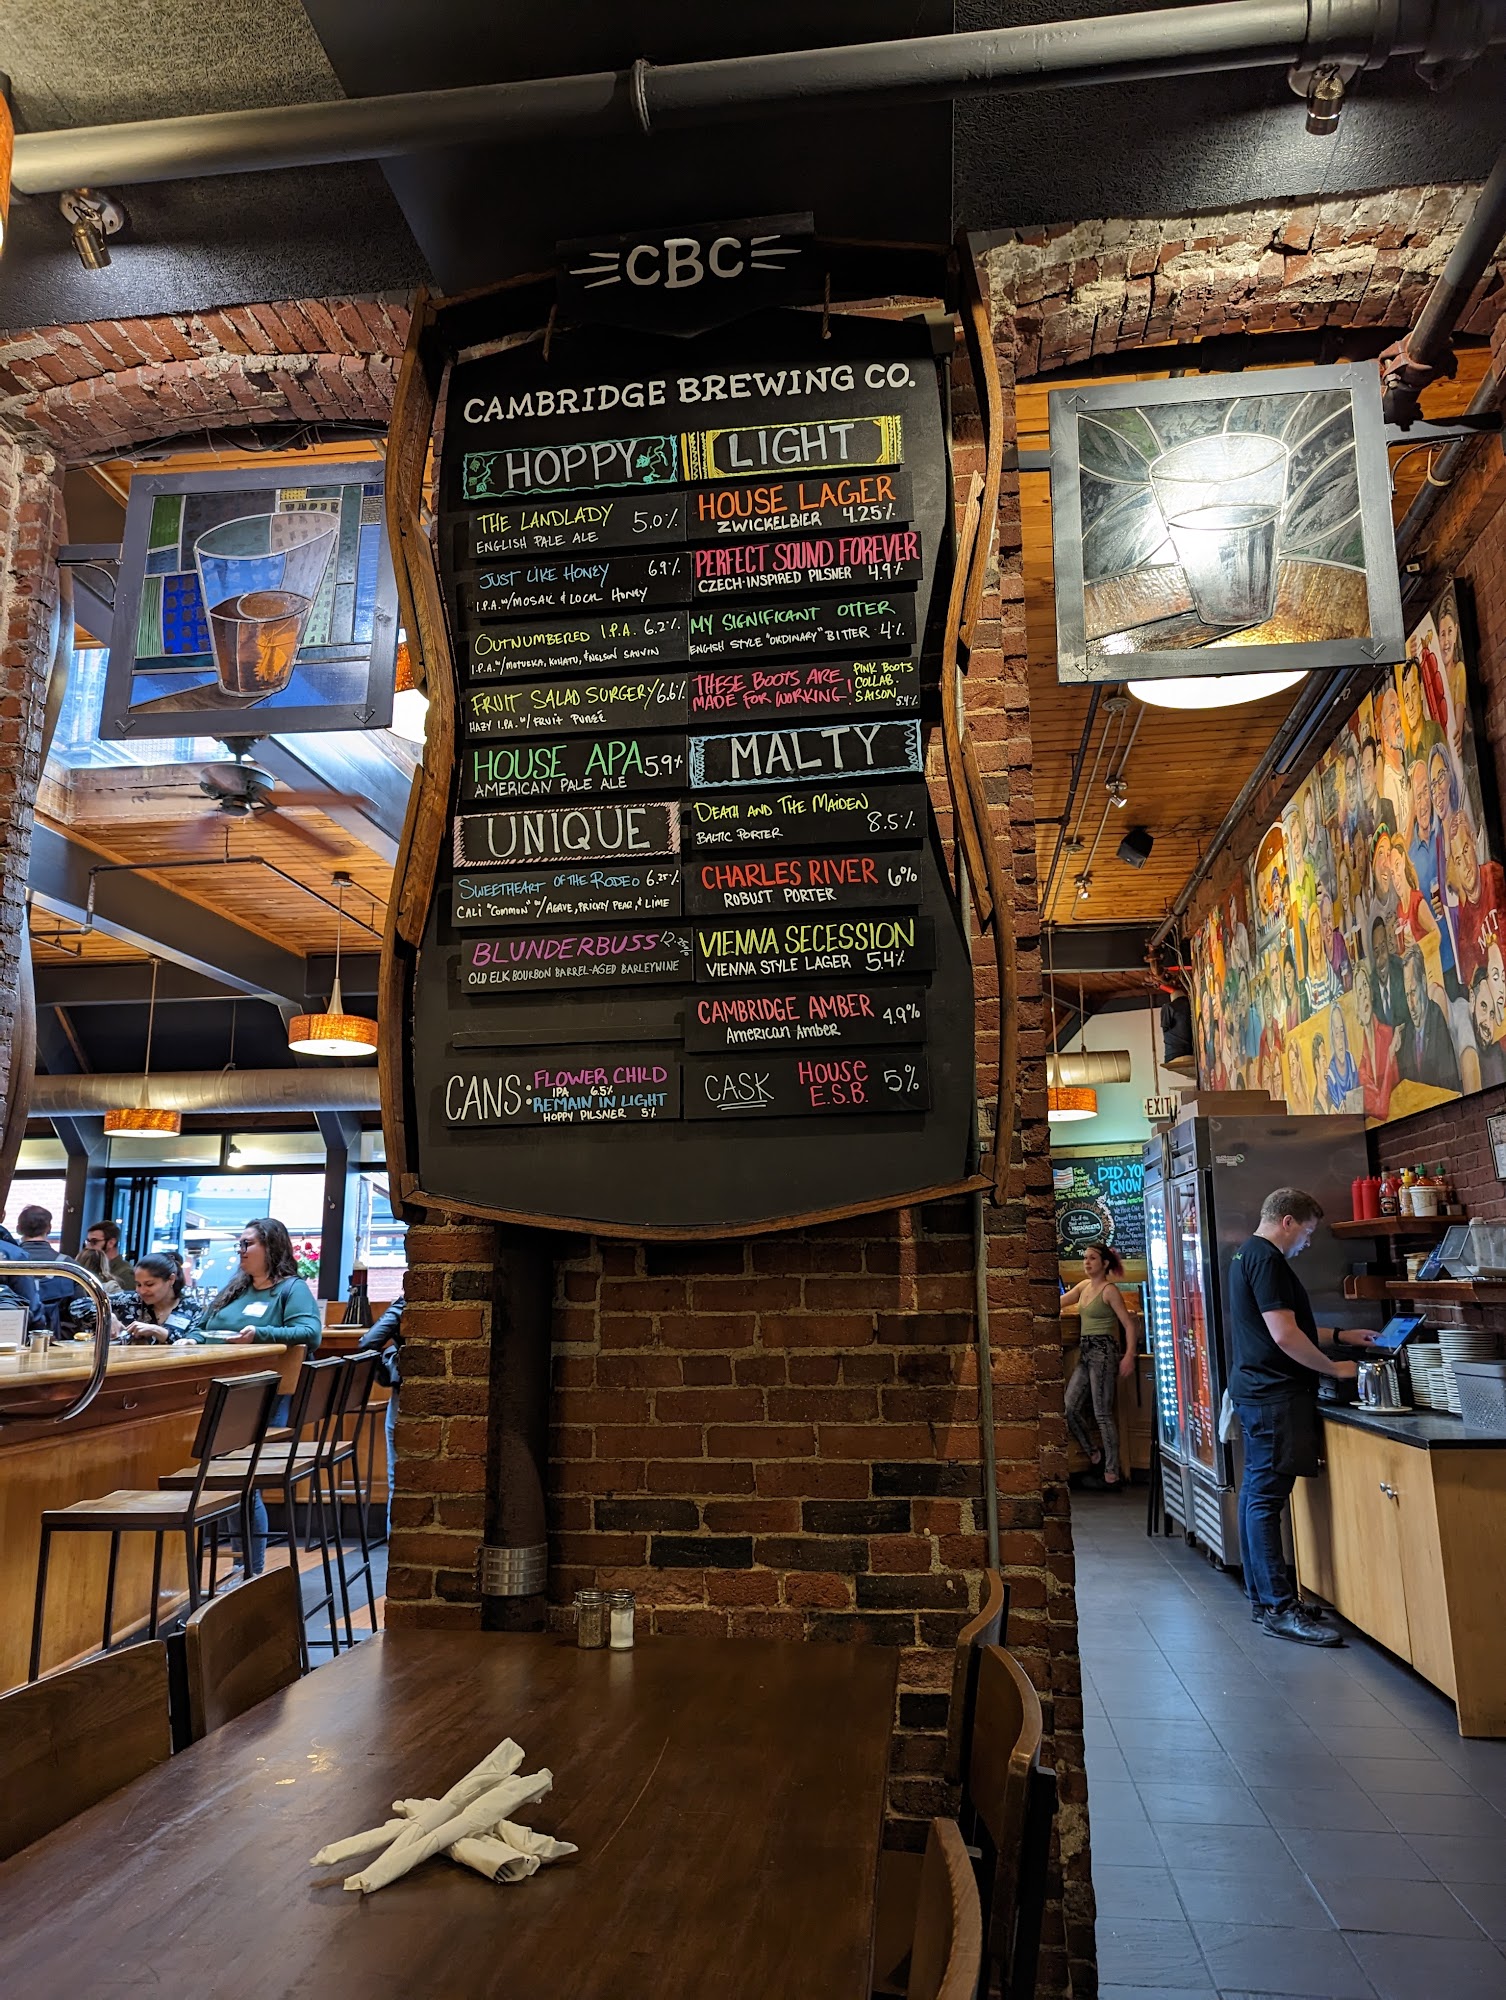 CBC
CAMBRIDGE BREWING CO.
HOPPY
THE LANDLADY 5.0%
ENGLISH PALE ALE
JUST LIKE HONEY 6.9%
I.P.A. W/MOSAIC & LOCAL HONEY
OUTNUMBERED I.P.A. 6.2%
I.P.A. W/MOTUEKA, KOHATU, & NELSON SAUVIN
FRUIT SALAD SURGERY 6.6%
HAZY I.P.A. W/ FRUIT PUREÉ
HOUSE APA 5.9%
AMERICAN PALE ALE
UNIQUE
SWEETHEART OF THE RODEO 6.25%
CALI "COMMON" W/AGAVE, PRICKLY PEAR, & LIME
BLUNDERBUSS 12.25%
OLD ELK BOURBON BARREL-AGED BARLEYWINE
CANS: FLOWER CHILD
IPA 6.5%
REMAIN IN LIGHT
HOPPY PILSNER 5%
LIGHT
HOUSE LAGER
ZWICKELBIER 4.25%
PERFECT SOUND FOREVER
CZECH-INSPIRED PILSNER 4.9%
MY SIGNIFICANT OTTER
ENGLISH STYLE "ORDINARY" BITTER 4%
THESE BOOTS ARE
MADE FOR WORKING!
PINK BOOTS
COLLAB.
SAISON
5.4%
MALTY
DEATH AND THE MAIDEN
BALTIC PORTER 8.5%
CHARLES RIVER 6%
ROBUST PORTER
VIENNA SECESSION
VIENNA STYLE LAGER 5.4%
CAMBRIDGE AMBER 4.9%
American Amber
CASK HOUSE
E.S.B. 5%
EXIT
DID YOU
KNOW
MIT